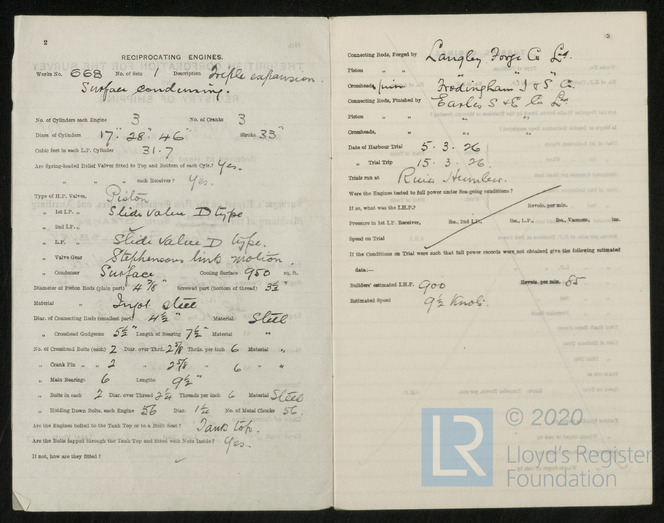 2
RECIPROCATING ENGINES.
Works No. 668 No. of Sets 1 Description Triple expansion.
Surface condensing.
No. of Cylinders each Engine 3 No. of Cranks 3
Diams. of Cylinders 17" 28" 46" Stroke 33"
Cubic feet in each L.P. Cylinder 31.7
Are Spring-loaded Relief Valves fitted to Top and Bottom of each Cylr.? Yes.
" " " each Receiver? Yes.
Type of H.P. Valves, Piston
" 1st I.P. " Slide valve D type
" 2nd I.P. "
" L.P. " Slide Valve D type.
" Valve Gear Stephensons link motion.
" Condenser Surface Cooling Surface 950 sq. ft.
Diameter of Piston Rods (plain part) 4 7/8" Screwed part (bottom of thread)
Material " Ingot steel
Diar. of Connecting Rods (smallest part) 4 1/2" Material Steel
" Crosshead Gudgeons 5 1/2" Length of Bearing 7 1/2" Material "
No. of Crosshead Bolts (each) 2 Diar. over Thrd. 2 3/8 Thrds. per inch 6 Material "
" Crank Pin " " 2 " 2 5/8 " 6 "
" Main Bearings 6 Lengths 9 1/2"
" Bolts in each 2 Diar. over Thread 2 1/4 Threads per inch 6 Material Steel
" Holding Down Bolts, each Engine 56 Diar. 1 1/4 No. of Metal Chocks 56.
Are the Engines bolted to the Tank Top or to a Built Seat? Tank top.
Are the Bolts tapped through the Tank Top and fitted with Nuts Inside? Yes.
If not, how are they fitted?
3
Connecting Rods, Forged by Langley Forge Co Ltd.
Piston " " " "
Crossheads, " Frodingham I & S Co.
Connecting Rods, Finished by Earles S & E Co Ltd
Piston " "
Crossheads, " "
Date of Harbour Trial 5.3.26
" Trial Trip 15.3.26.
Trials run at River Humber.
Were the Engines tested to full power under Sea-going conditions?
If so, what was the I.H.P.? Revols. per min.
Pressure in 1st I.P. Receiver, lbs., 2nd I.P., lbs., L.P., lbs., Vacuum, ins.
Speed on Trial
If the Conditions on Trial were such that full power records were not obtained give the following estimated
data:—
Builders' estimated I.H.P. 900 Revols. per min. 85
Estimated Speed 9 1/2 Knots.
LR
© 2020
Lloyd's Register
Foundation